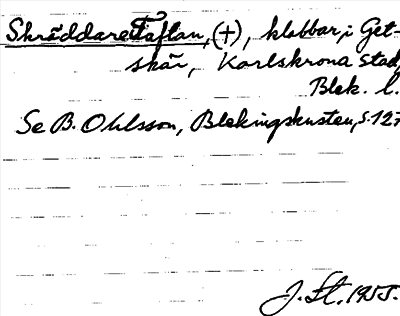 Skräddaretåftan, (+), klabbar, i Get-
skär, Karlskrona stad,
Blek. l.
Se B. Ohlsson, Blekingskusten, s. 127
J. St. 1955.